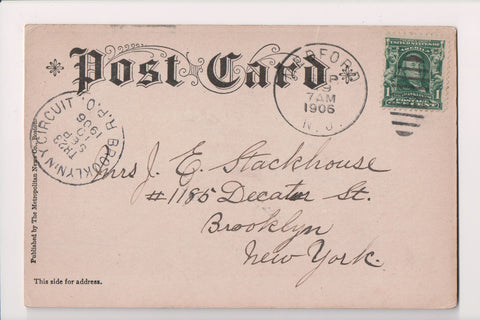 Post Card
7 AM
1906
N. J.
BROOKLYN, N.Y. CIRCUIT R.P.O.
TR 23
SEP
1906
Mrs J. E. Stackhouse
#1185 Decatur St.
Brooklyn
New York.
Published by The Metropolitan News Co.,
This side for address.